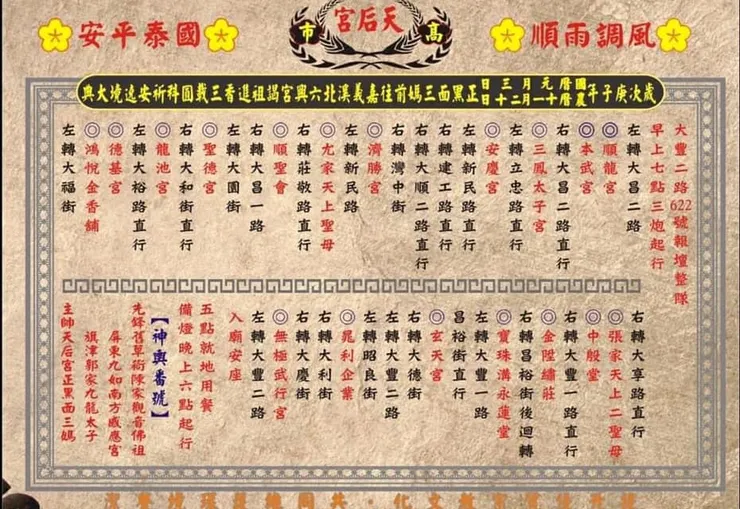 風調雨順
高市
天后宮
國泰平安
歲次庚子年國曆元月三日農曆十一月二十日正黑面三媽前往嘉義溪北六興宮謁祖進香三載圓科祈安遶境大典
大豐二路622號報壇整隊
早上七點三炮起行
左轉大昌二路
◎順龍宮
◎本武宮
右轉大昌二路直行
◎三鳳太子宮
左轉立忠路直行
◎安慶宮
左轉新民路直行
右轉建工路直行
右轉大順二路直行
右轉灣中街
◎濟勝宮
左轉新民路
◎尤家天上聖母
右轉莊敬路直行
◎順聖會
右轉大昌一路
左轉大圓街
◎聖德宮
右轉大和街直行
◎龍池宮
右轉大裕路直行
◎德基宮
◎鴻悅金香舖
左轉大福街
右轉大享路直行
◎張家天上二聖母
◎中殷堂
右轉大豐一路直行
◎金陞繡莊
右轉昌裕街後迴轉
◎寶珠溝永蓮堂
左轉大豐一路
昌裕街直行
◎玄天宮
右轉大德街
左轉大豐二路
左轉昭良街
◎晁利企業
右轉大利街
右轉大慶街
◎無極武行宮
左轉大豐二路
入廟安座
五點就地用餐
備燈晚上六點起行
【神輿番號】
先鋒舊草衙陳家觀音佛祖
屏東九如南方感應宮
旗津郭家九龍太子
主帥天后宮正黑面三媽